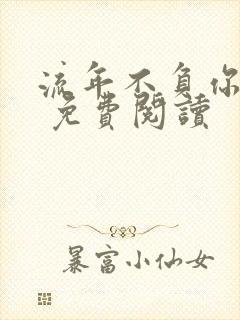 流年不負你
免費閱讀
暴富小仙女